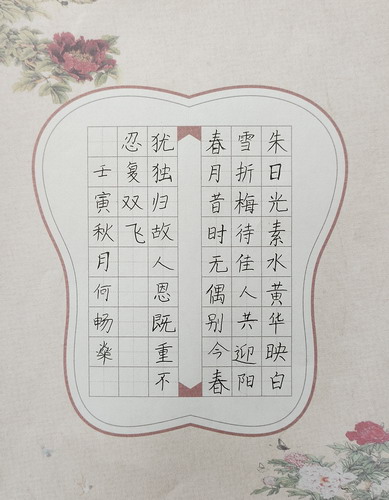 朱日光素水黄华映白
雪折梅待佳人共迎阳
春月昔时无偶别今春
犹独归故人恩既重不
忍复双飞
壬寅秋月何畅燊